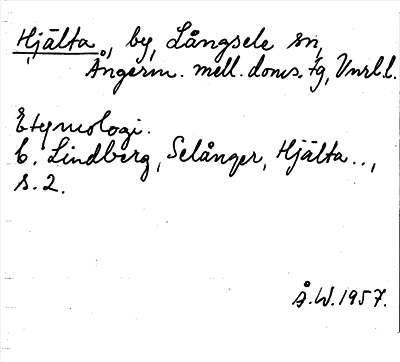 Hjälta, by, Långsele sn,
Ångerm. mell. doms. tg, Vnrl. l.
Etymologi.
C. Lindberg, Selånger, Hjälta..,
s. 2.
Å.W. 1957.